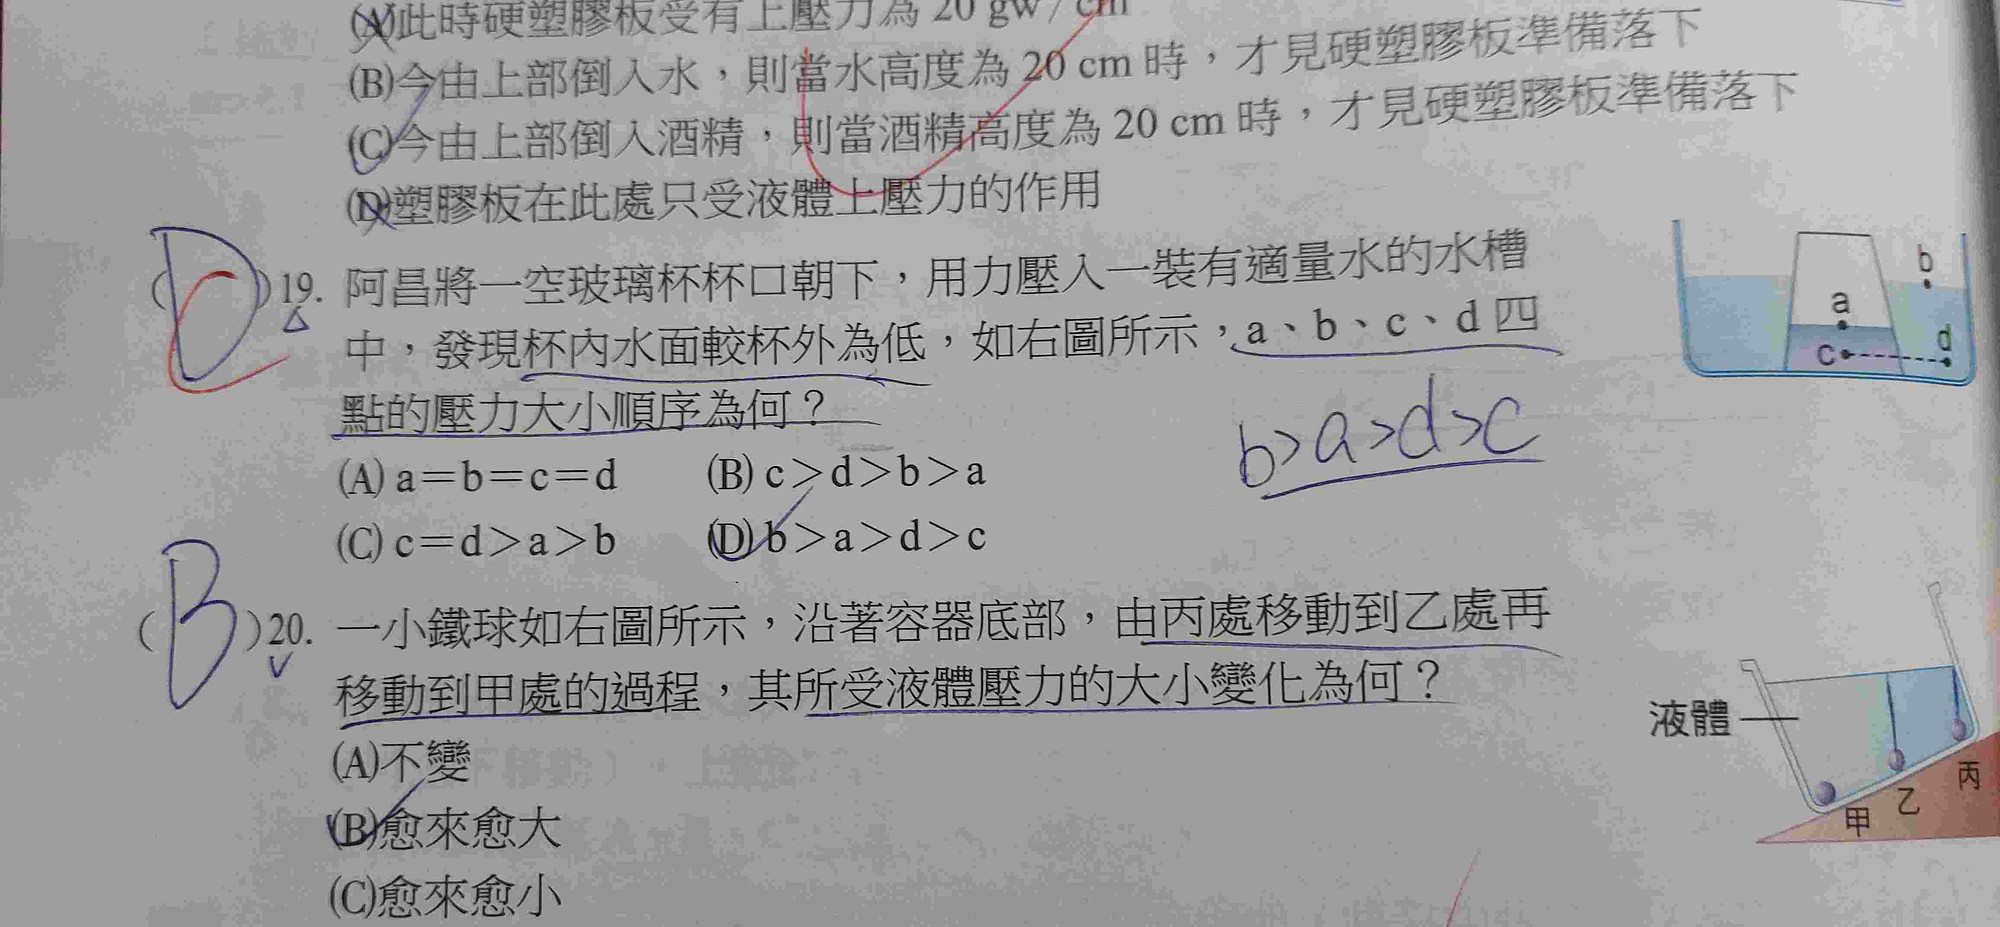 (A)此時硬塑膠板受有上壓力為 20 gw/cm
(B)今由上部倒入水，則當水高度為 20 cm 時，才見硬塑膠板準備落下
(C)今由上部倒入酒精，則當酒精高度為 20 cm 時，才見硬塑膠板準備落下
(D)塑膠板在此處只受液體上壓力的作用
(D)19. 阿昌將一空玻璃杯杯口朝下，用力壓入一裝有適量水的水槽
C
中，發現杯內水面較杯外為低，如右圖所示，a、b、c、d 四
點的壓力大小順序為何？
(A) a＝b＝c＝d (B) c＞d＞b＞a
(C) c＝d＞a＞b (D) b＞a＞d＞c
b>a>d>c
a
b
c
d
(B)20. 一小鐵球如右圖所示，沿著容器底部，由丙處移動到乙處再
移動到甲處的過程，其所受液體壓力的大小變化為何？
(A)不變
(B)愈來愈大
(C)愈來愈小
液體
甲
乙
丙